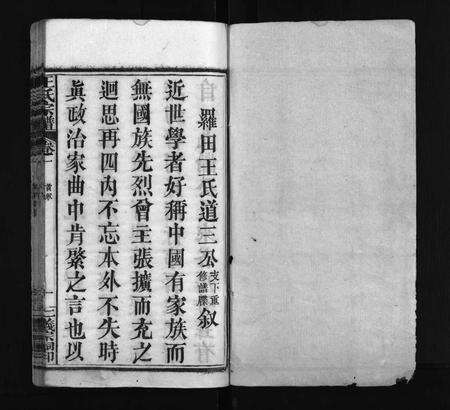 羅田王氏道三公支下重修譜牒叙
近世學者好稱中國有家族而
無國族先烈曾主張擴而充之
迴思再四內不忘本外不失時
眞政治家曲中肯綮之言也以
王氏宗譜
卷一
三槐堂